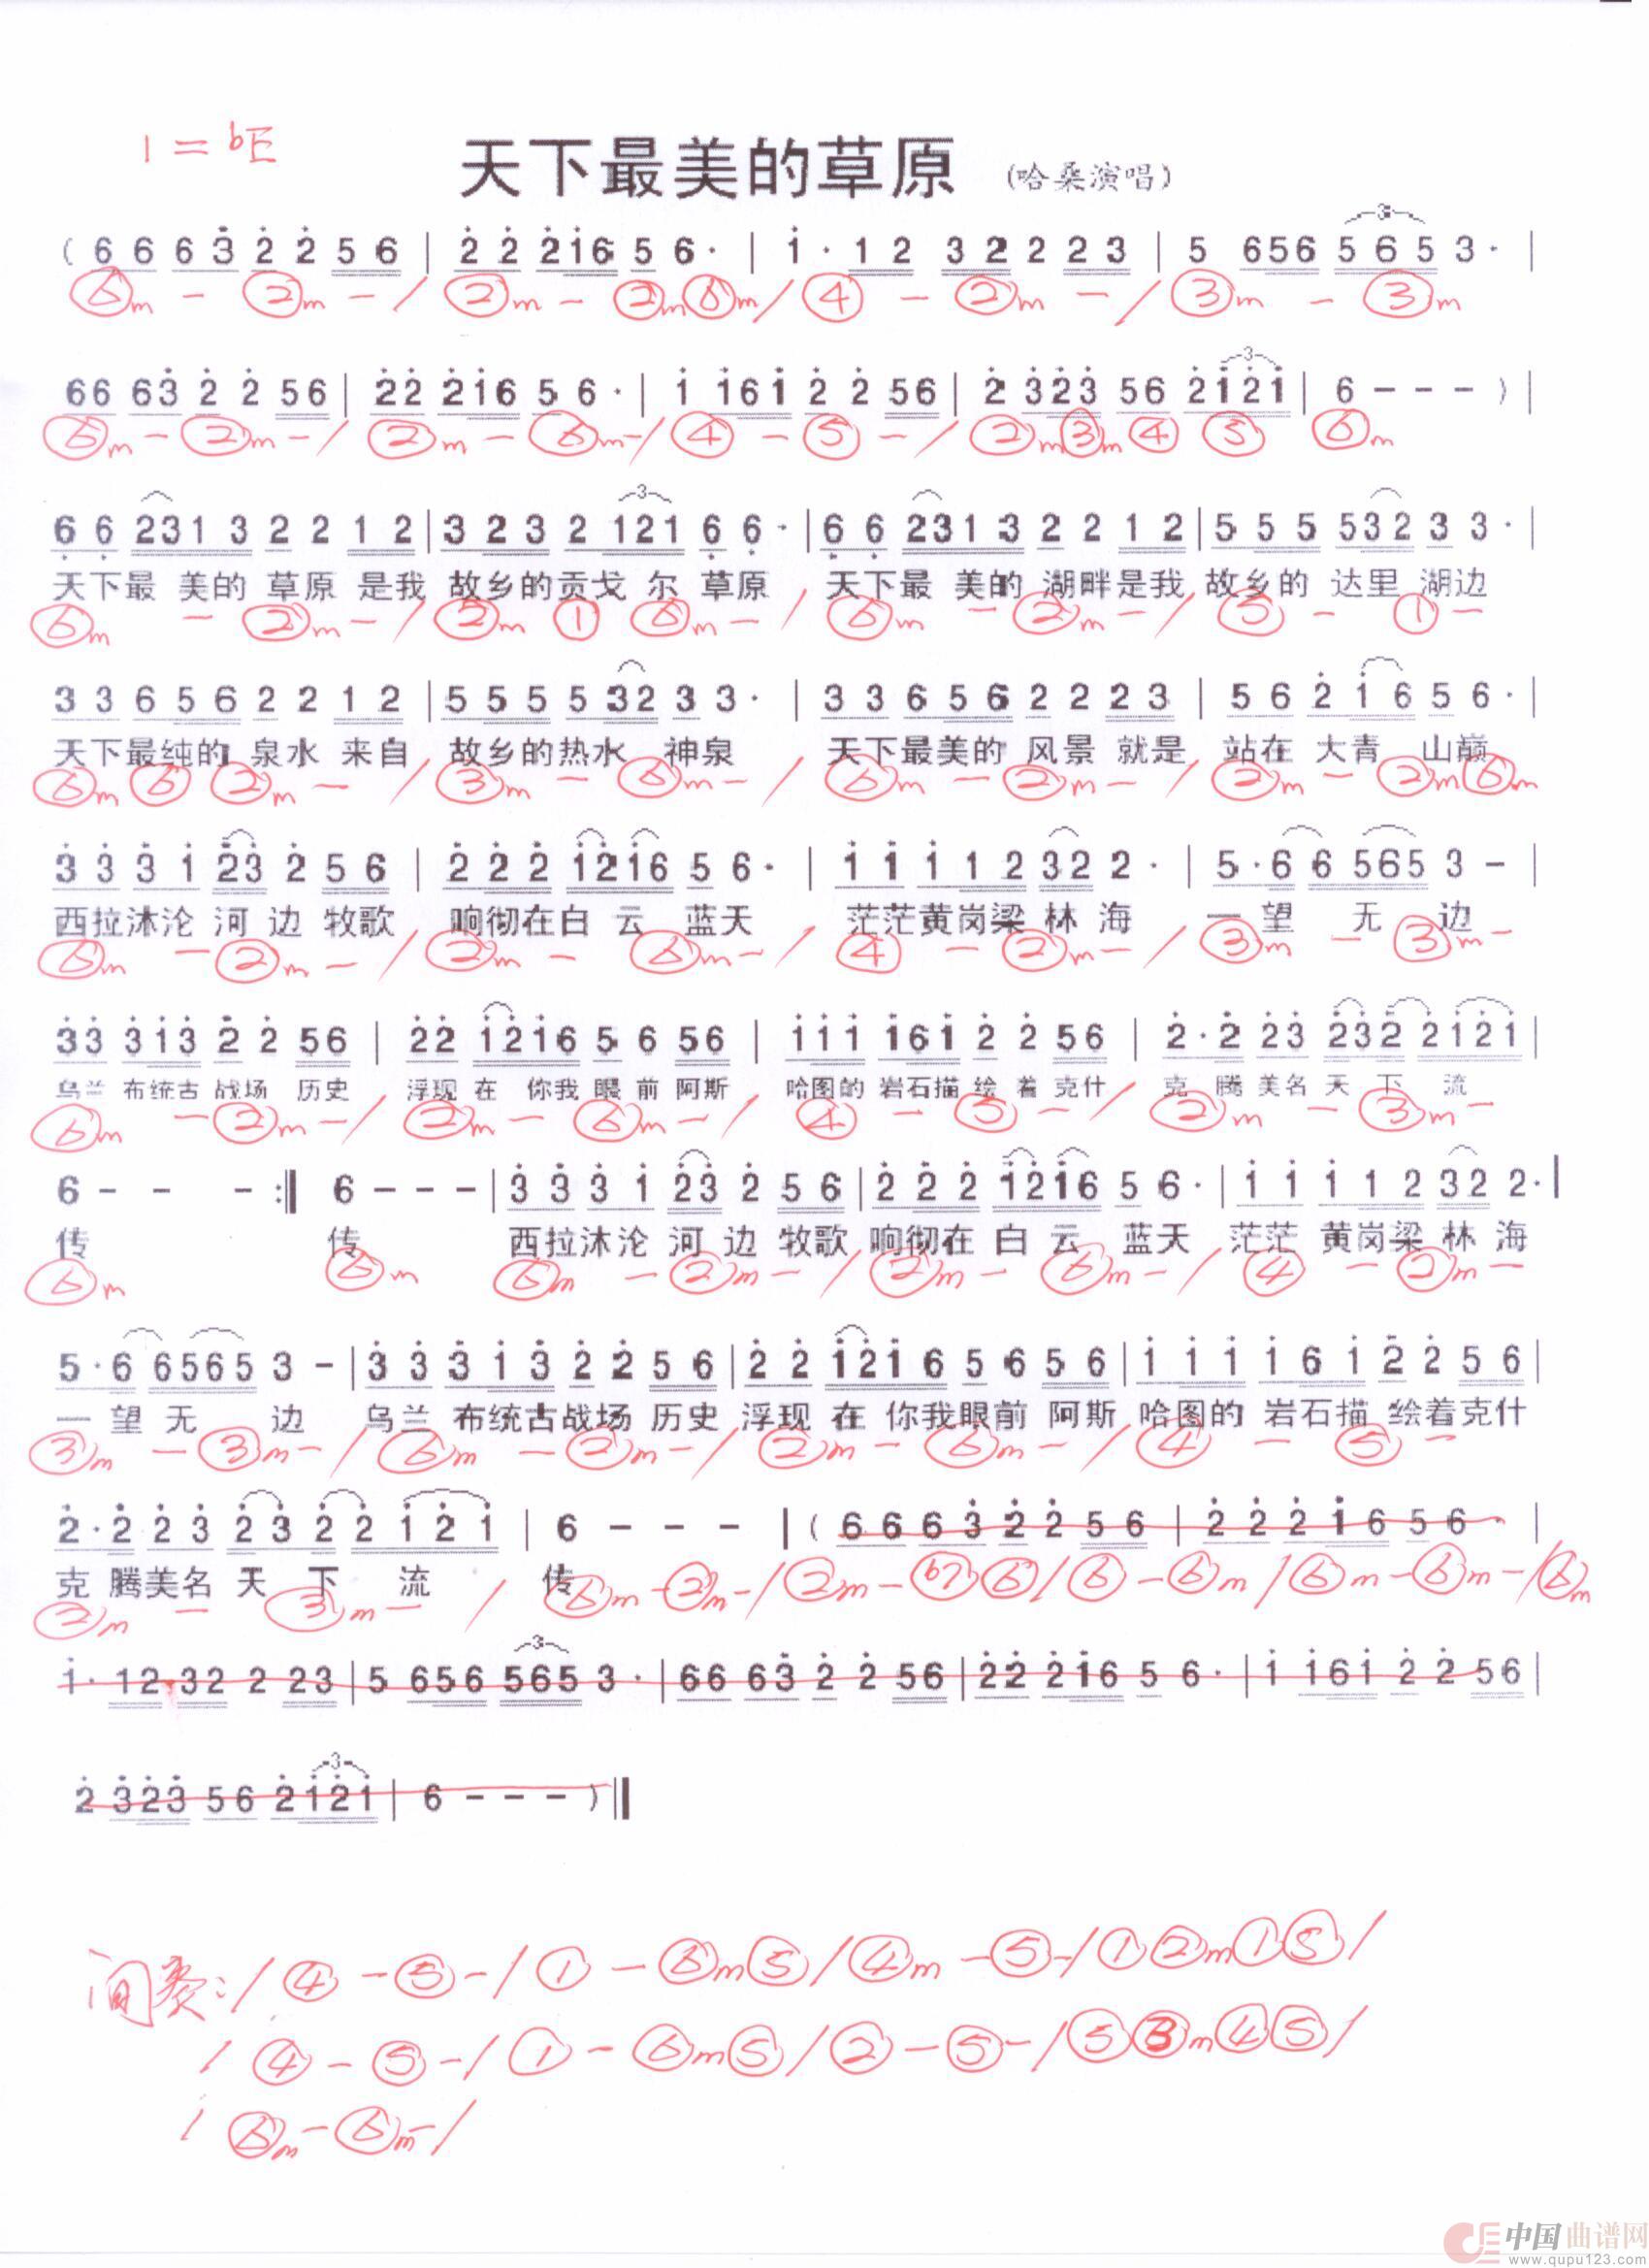 1=bE
天下最美的草原 (哈桑演唱)
( 6 6 6 3 2 2 5 6 | 2 2 2 1 6 5 6 · | 1 · 1 2 3 2 2 2 3 | 5 6 5 6 5 6 5 3 · |
⑥m - ②m - / ②m - ②m⑥m / ④ - ②m - / ③m - ③m
6 6 6 3 2 2 5 6 | 2 2 2 1 6 5 6 · | 1 1 6 1 2 2 5 6 | 2 3 2 3 5 6 2 1 2 1 | 6 - - - ) |
⑥m - ②m - / ②m - ⑥m - / ④ - ⑤ - / ②m③m④ ⑤ ⑥m
6 6 2 3 1 3 2 2 1 2 | 3 2 3 2 1 2 1 6 6 · | 6 6 2 3 1 3 2 2 1 2 | 5 5 5 5 3 2 3 3 · |
天下最 美的 草原 是我 故乡的贡戈 尔 草原 天下最 美的 湖畔是我 故乡的 达里 湖边
⑥m - ②m - / ②m ① ⑥m - / ⑥m - ②m - / ⑤ - ① -
3 3 6 5 6 2 2 1 2 | 5 5 5 5 3 2 3 3 · | 3 3 6 5 6 2 2 2 3 | 5 6 2 1 6 5 6 · |
天下最纯的 泉水 来自 故乡的热水 神泉 天下最美的 风景 就是 站在 大青 山巅
⑥m ⑥ ②m - / ③m - ⑥m - / ⑥m - ②m - / ②m - ②m⑥m
3 3 3 1 2 3 2 5 6 | 2 2 2 1 2 1 6 5 6 · | 1 1 1 1 2 3 2 2 · | 5 · 6 6 5 6 5 3 - |
西拉沐沦 河 边 牧歌 响彻在白 云 蓝天 茫茫黄岗梁 林 海 一 望 无 边
⑥m - ②m - / ②m - ⑥m - / ④ - ②m - / ③m - ③m -
3 3 3 1 3 2 2 5 6 | 2 2 1 2 1 6 5 6 5 6 | 1 1 1 1 6 1 2 2 5 6 | 2 · 2 2 3 2 3 2 2 1 2 1 |
乌兰 布统古 战场 历史 浮现 在 你我 眼 前 阿斯 哈图的 岩石描 绘 着 克什 克 腾 美名 天 下 流
⑥m - ②m - / ②m - ⑥m - / ④ - ⑤ - / ②m - ③m -
6 - - - :‖ 6 - - - | 3 3 3 1 2 3 2 5 6 | 2 2 2 1 2 1 6 5 6 · | 1 1 1 1 2 3 2 2 · |
传 传 西拉沐沦 河 边 牧歌 响彻在 白 云 蓝天 茫茫 黄岗梁 林 海
⑥m ⑥m ⑥m - ②m - / ②m - ⑥m - / ④ - ②m -
5 · 6 6 5 6 5 3 - | 3 3 3 1 3 2 2 5 6 | 2 2 1 2 1 6 5 6 5 6 | 1 1 1 1 6 1 2 2 5 6 |
一 望 无 边 乌兰 布统古战场 历史 浮现 在 你我眼前 阿斯 哈图的 岩石描 绘着克什
③m - ③m - / ⑥m - ②m - / ②m - ⑥m - / ④ - ⑤ -
2 · 2 2 3 2 3 2 2 1 2 1 | 6 - - - | ( 6 6 6 3 2 2 5 6 | 2 2 2 1 6 5 6 · |
克 腾美名 天 下 流 传
②m - ③m - / ⑥m - ②m - / ②m - b7 ⑥ / ⑥ - ⑥m / ⑥m - ⑥m - / ⑥m
1 · 1 2 3 2 2 2 3 | 5 6 5 6 5 6 5 3 · | 6 6 6 3 2 2 5 6 | 2 2 2 1 6 5 6 · | 1 1 6 1 2 2 5 6 |
2 3 2 3 5 6 2 1 2 1 | 6 - - - ) ‖
间奏: / ④ - ⑤ - / ① - ⑥m⑤ / ④m - ⑤ - / ① ②m①⑤ /
/ ④ - ⑤ - / ① - ⑥m⑤ / ② - ⑤ - / ⑤③m④⑤ /
/ ⑥m - ⑥m - /
中国曲谱网
www.qupu123.com